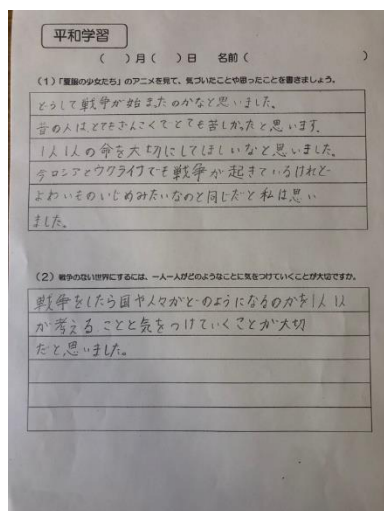 平和学習
(　)月(　)日　名前(　)
(1)「夏服の少女たち」のアニメを見て、気づいたことや思ったことを書きましょう。
どうして戦争が始またのかなと思いました。
昔の人はとてもざんこくでとても苦しかたと思います。
1人1人の命を大切にしてほしいなと思いました。
今ロシアとウクライナでも戦争が起きているけれど
よわいものいじめみたいなのと同じだと私は思い
ました。
(2)戦争のない世界にするには、一人一人がどのようなことに気をつけていくことが大切ですか。
戦争をしたら国や人々がどのようになるのかを1人1人
が考えることと気をつけていくことが大切
だと思いました。